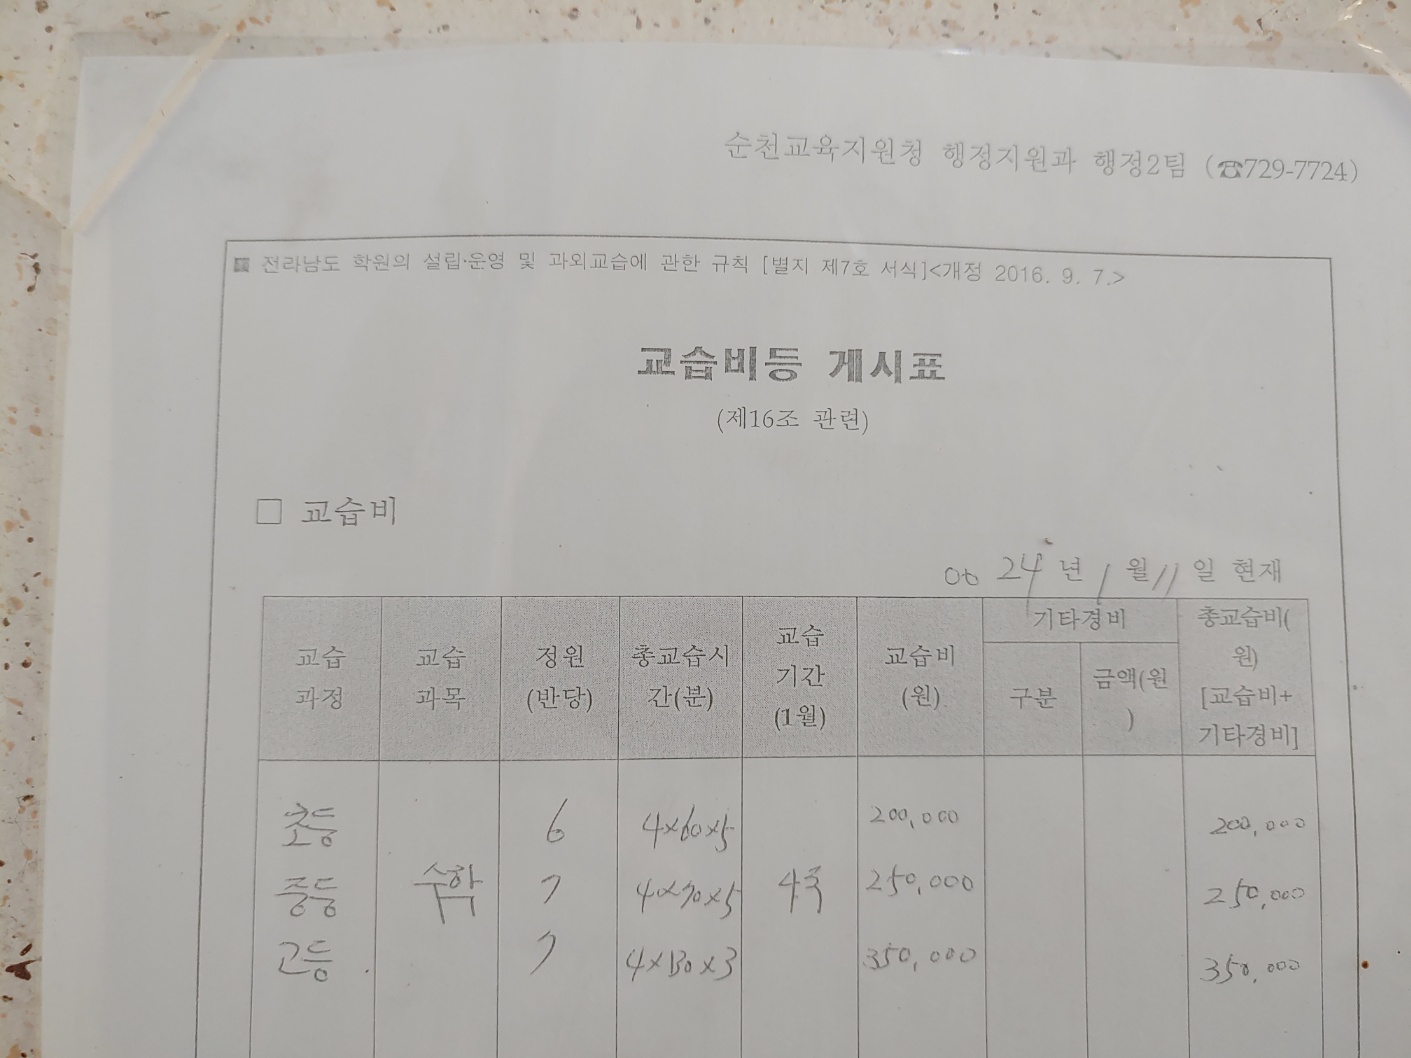 순천교육지원청 행정지원과 행정2팀 (☎729-7724)
▣ 전라남도 학원의 설립·운영 및 과외교습에 관한 규칙 [별지 제7호 서식]<개정 2016. 9. 7.>
교습비등 게시표
(제16조 관련)
□ 교습비
24년 1월 11일 현재
교습 과정
교습 과목
정원 (반당)
총교습시간(분)
교습 기간 (1월)
교습비 (원)
기타경비
구분
금액(원)
총교습비(원) [교습비+기타경비]
초등 6 4×60×5 200,000 200,000
중등 수학 7 4×70×5 4주 250,000 250,000
고등 7 4×130×3 350,000 350,000